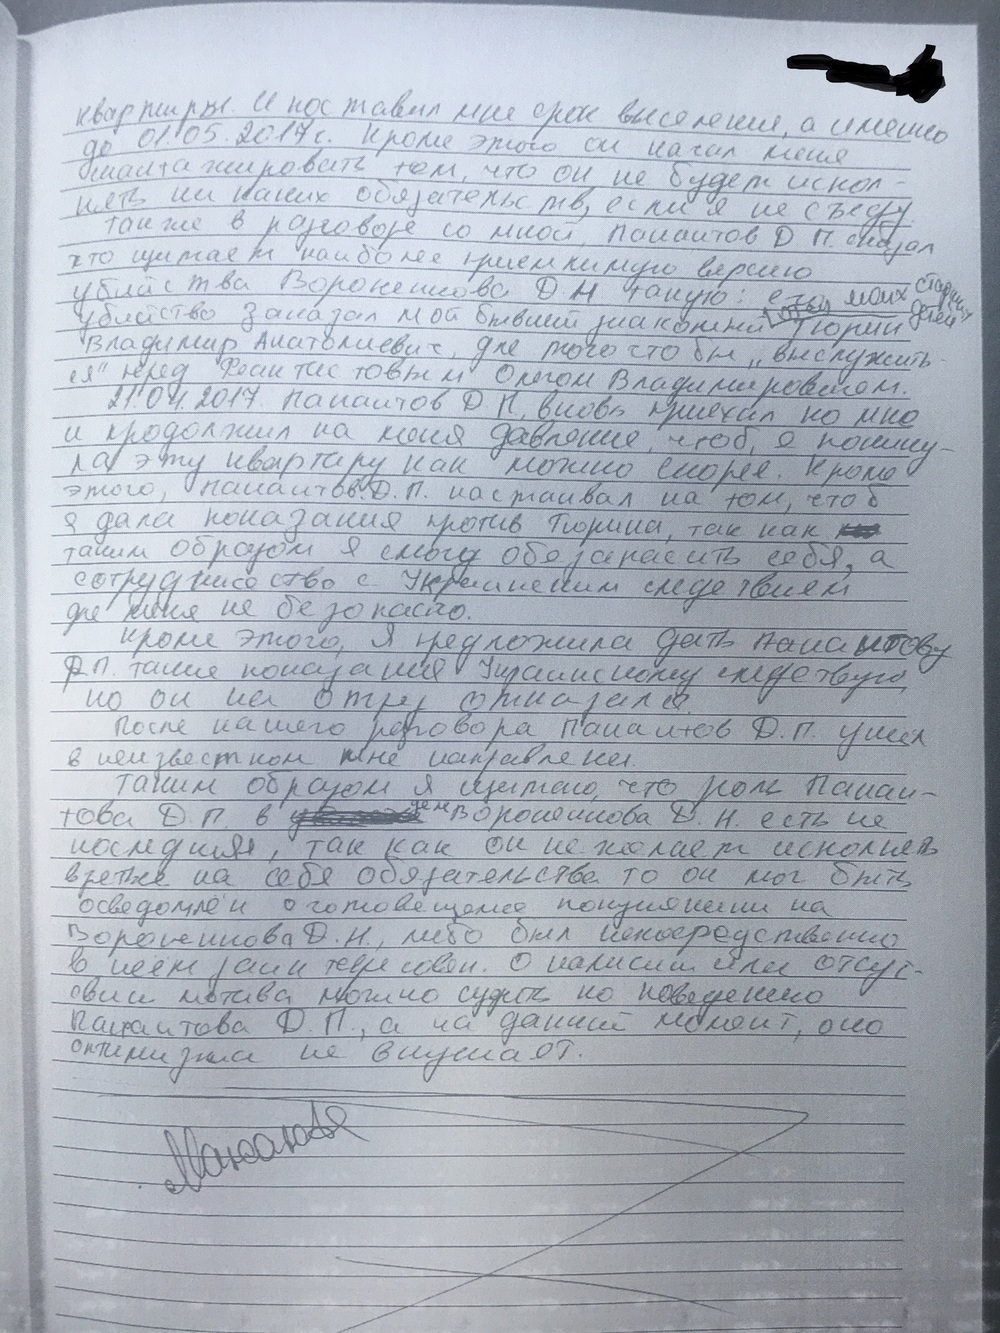 квартиры. И поставил мне срок выселения, а именно
до 01.05.2017г. Кроме этого он начал меня
шантажировать тем, что он не будет испол-
нять ни каких обязательств, если я не съеду.
Также в разговоре со мной, Панаитов Д.П. сказал
что щитает наиболее приемлимую версию
убийства Вороненкова Д.Н. такую:
отец моих старших детей
убийство заказал мой бывший знакомый Тюрин
Владимир Анатолиевич, для того что бы „выслужить-
ся" перед Феактистовым Олегом Владимировичем.
21.04.2017. Панаитов Д.П. вновь приехал ко мне
и продолжил на меня давление, чтоб, я покину-
ла эту квартиру как можно скорее. Кроме
этого, Панаитов Д.П. настаивал на том, чтоб
я дала показания против Тюрина, так как
таким образом я смогу обезапасить себя, а
сотрудничество с Украинским следствием
для меня не безопасно.
Кроме этого, Я предложила дать Панаитову
Д.П. такие показания Украинскому следствию,
но он на отрез отказался.
После нашего разговора Панаитов Д.П. ушел
в неизвестном мне направлении.
Таким образом я щитаю, что роль Панаи-
това Д.П. в деле Вороненкова Д.Н. есть не
последняя, так как он не желает исполнять
взятые на себя обязательства то он мог быть
осведомлён о готовещемся покушении на
Вороненкова Д.Н., либо был непосредственно
в нём заинтересован. О наличии или отсут-
свии мотива можно судить по поведению
Панаитова Д.П., а на данный момент, оно
оптимизма не внушает.
Максакова